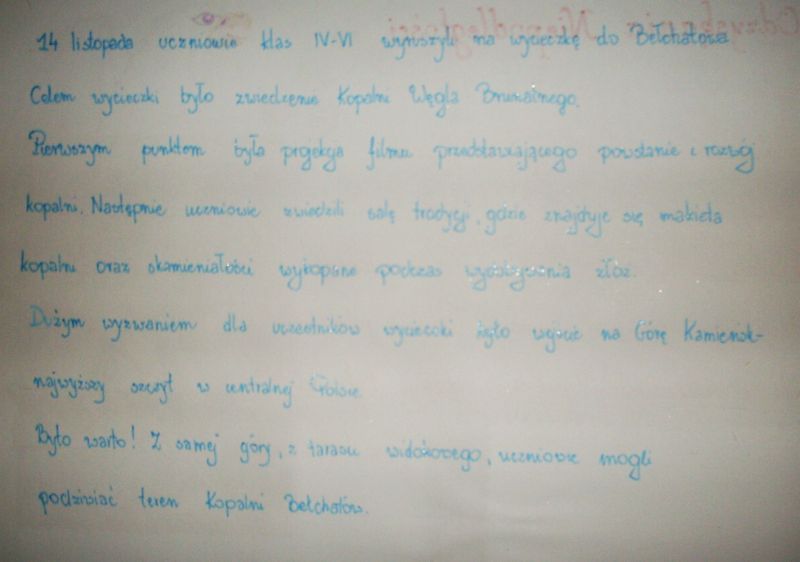 14 listopada uczniowie klas IV-VI wyruszyli na wycieczkę do Bełchatowa
Celem wycieczki było zwiedzenie Kopalni Węgla Brunatnego.
Pierwszym punktem była projekcja filmu przedstawiającego powstanie i rozwój
kopalni. Następnie uczniowie zwiedzili salę tradycji, gdzie znajduje się makieta
kopalni oraz skamieniałości wykopane podczas wydobywania złoż.
Dużym wyzwaniem dla uczestników wycieczki było wejście na Górę Kamieńsk-
najwyższy szczyt w centralnej Polsce.
Było warto! Z samej góry, z tarasu widokowego, uczniowie mogli
podziwiać teren Kopalni Bełchatów.
Odzyskanie Niepodległości